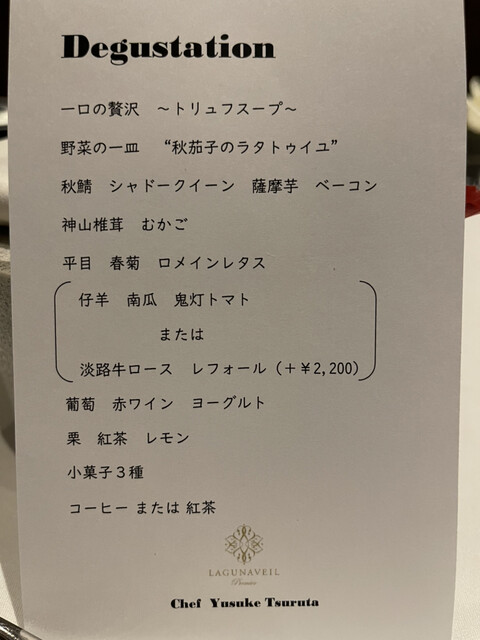 Degustation
一口の贅沢　～トリュフスープ～
野菜の一皿　“秋茄子のラタトゥイユ”
秋鯖　シャドークイーン　薩摩芋　ベーコン
神山椎茸　むかご
平目　春菊　ロメインレタス
仔羊　南瓜　鬼灯トマト
または
淡路牛ロース　レフォール（＋￥2,200）
葡萄　赤ワイン　ヨーグルト
栗　紅茶　レモン
小菓子３種
コーヒー または 紅茶
LAGUNAVEIL
Premier
Chef Yusuke Tsuruta